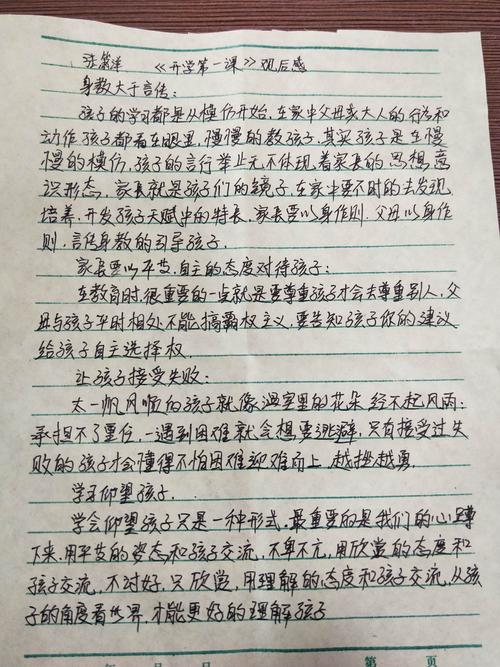 张 洋 《开学第一课》观后感
身教大于言传：
孩子的学习都是从模仿开始，在家中父母亲大人的行为和
动作孩子都看在眼里，慢慢的教孩子，其实孩子是在慢
慢的模仿，孩子的言行举止无不体现着家长的思想，意
识形态，家长就是孩子们的镜子，在家中要不时的去发现
培养，开发孩子天赋中的特长，家长要以身作则，父母以身作
则，言传身教的引导孩子，
家长要以平等，自主的态度对待孩子：
在教育时，很重要的一点就是要尊重孩子才会去尊重别人，父
母与孩子平时相处不能搞霸权主义，要告知孩子你的建议
给孩子自主选择权，
让孩子接受失败：
太一帆风顺的孩子就像温室里的花朵 经不起风雨；
承担不了重任，一遇到困难就会想要逃避，只有接受过失
败的孩子才会懂得不怕困难，迎难而上，越挫越勇。
学习仰望孩子，
学会仰望孩子只是一种形式，最重要的是我们的心蹲
下来，用平等的姿态和孩子交流，不卑不亢，用欣赏的态度和
孩子交流，不讨好，只欣赏，用理解的态度和孩子交流，从孩
子的角度看世界，才能更好的理解孩子
年 月 日 第 页